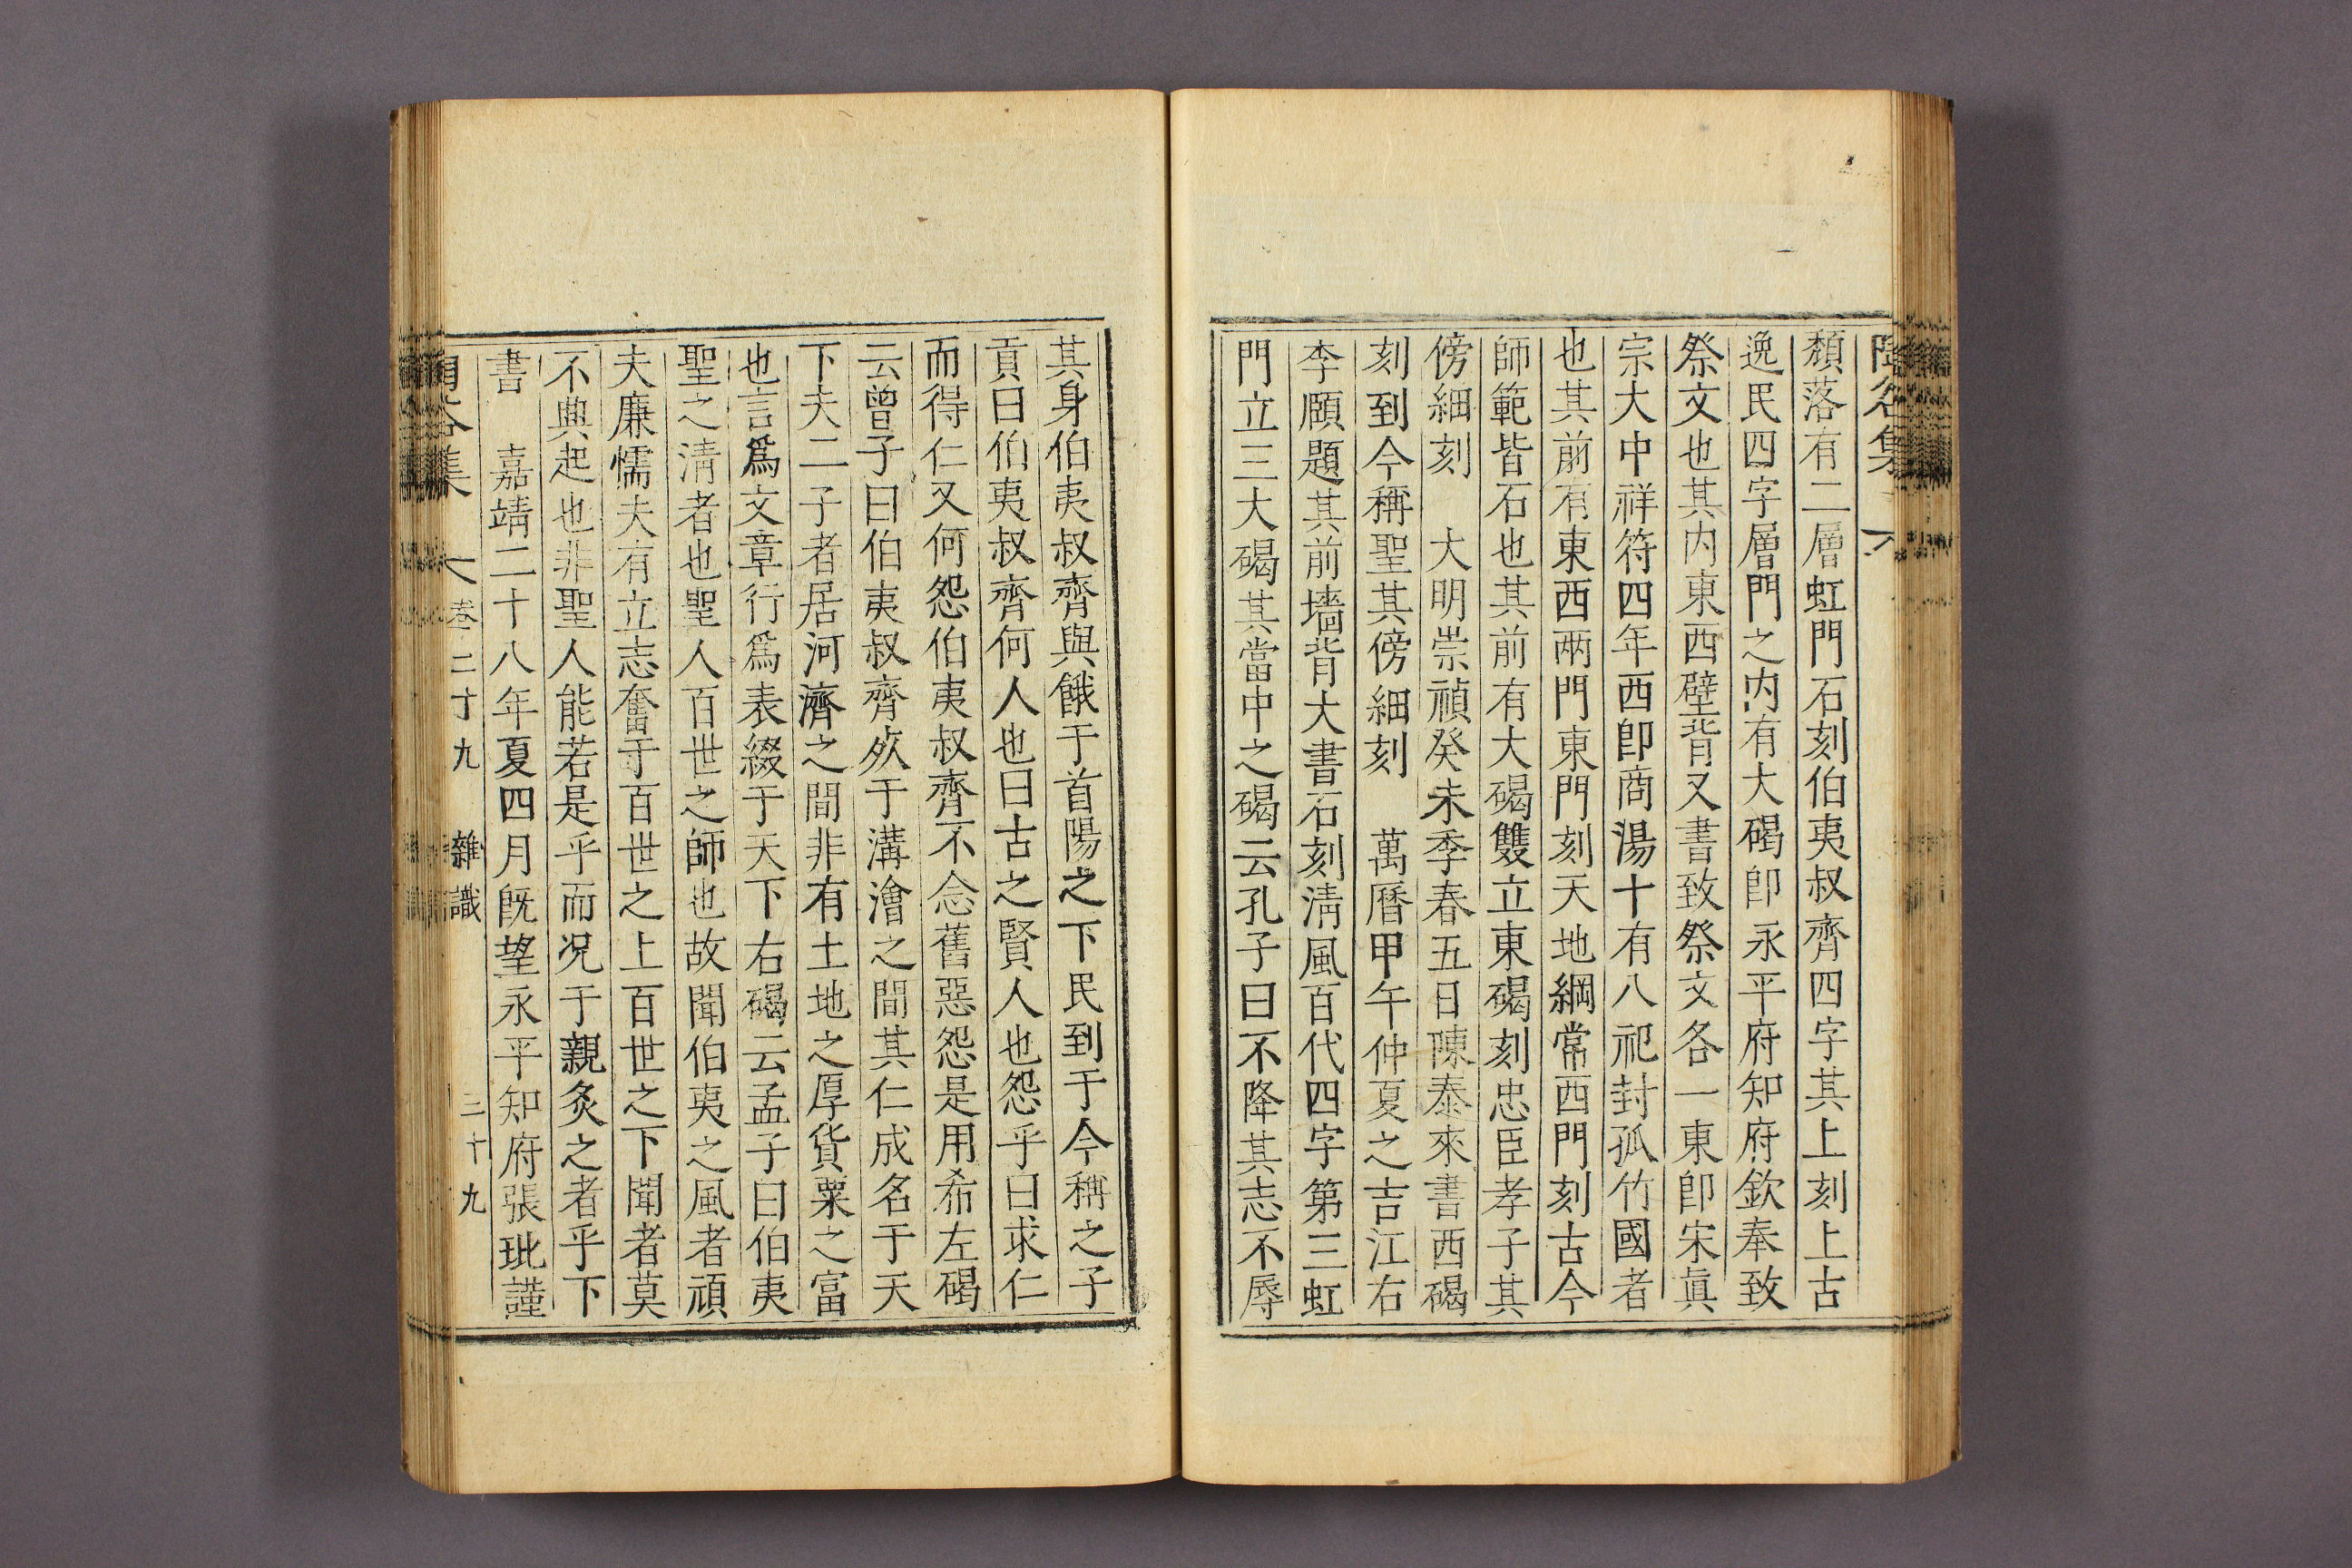 頹落有二層虹門石刻伯夷叔齊四字其上刻上古
逸民四字層門之內有大碣卽永平府知府欽奉致
祭文也其內東西壁背又書致祭文各一東卽宋眞
宗大中祥符四年西卽商湯十有八祀封孤竹國者
也其前有東西兩門東門刻天地綱常西門刻古今
師範皆石也其前有大碣雙立東碣刻忠臣孝子其
傍細刻 大明崇禎癸未季春五日陳泰來書西碣
刻到今稱聖其傍細刻 萬曆甲午仲夏之吉江右
李頤題其前墻背大書石刻淸風百代四字第三虹
門立三大碣其當中之碣云孔子曰不降其志不辱
其身伯夷叔齊與餓于首陽之下民到于今稱之子
貢曰伯夷叔齊何人也曰古之賢人也怨乎曰求仁
而得仁又何怨伯夷叔齊不念舊惡怨是用希左碣
云曾子曰伯夷叔齊死于溝澮之間其仁成名于天
下夫二子者居河濟之間非有土地之厚貨粟之富
也言爲文章行爲表綴于天下右碣云孟子曰伯夷
聖之淸者也聖人百世之師也故聞伯夷之風者頑
夫廉懦夫有立志奮于百世之上百世之下聞者莫
不興起也非聖人能若是乎而况于親炙之者乎下
書 嘉靖二十八年夏四月旣望永平知府張玭謹
集 卷二十九 雜識 三十九